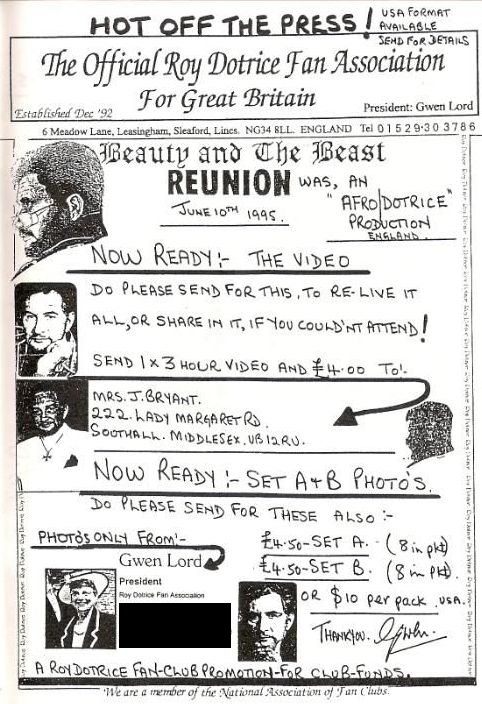 HOT OFF THE PRESS!
USA FORMAT
AVAILABLE
SEND FOR DETAILS
The Official Roy Dotrice Fan Association
For Great Britain
Established Dec '92
President: Gwen Lord
6 Meadow Lane, Leasingham, Sleaford, Lincs. NG34 8LL. ENGLAND Tel 01529-30 3786
Beauty and The Beast
REUNION WAS, AN
JUNE 10TH 1995.
"AFRO/DOTRICE"
PRODUCTION
ENGLAND.
NOW READY:- THE VIDEO
DO PLEASE SEND FOR THIS, TO RE-LIVE IT
ALL, OR SHARE IN IT, IF YOU COULD'NT ATTEND!
SEND 1 X 3 HOUR VIDEO AND £4.00 TO:-
MRS. J. BRYANT.
222. LADY MARGARET RD.
SOUTHALL. MIDDLESEX. UB1 2RU.
NOW READY:- SET A+B PHOTO'S.
DO PLEASE SEND FOR THESE ALSO:-
PHOTO'S ONLY FROM:-
Gwen Lord
President
Roy Dotrice Fan Association
£4.50-SET A. (8 in pkt)
£4.50-SET B. (8 in pkt).
OR $10 per pack. USA.
THANKYOU. Gwen.
A ROY DOTRICE FAN-CLUB PROMOTION-FOR CLUB-FUNDS.
We are a member of the National Association of Fan Clubs.